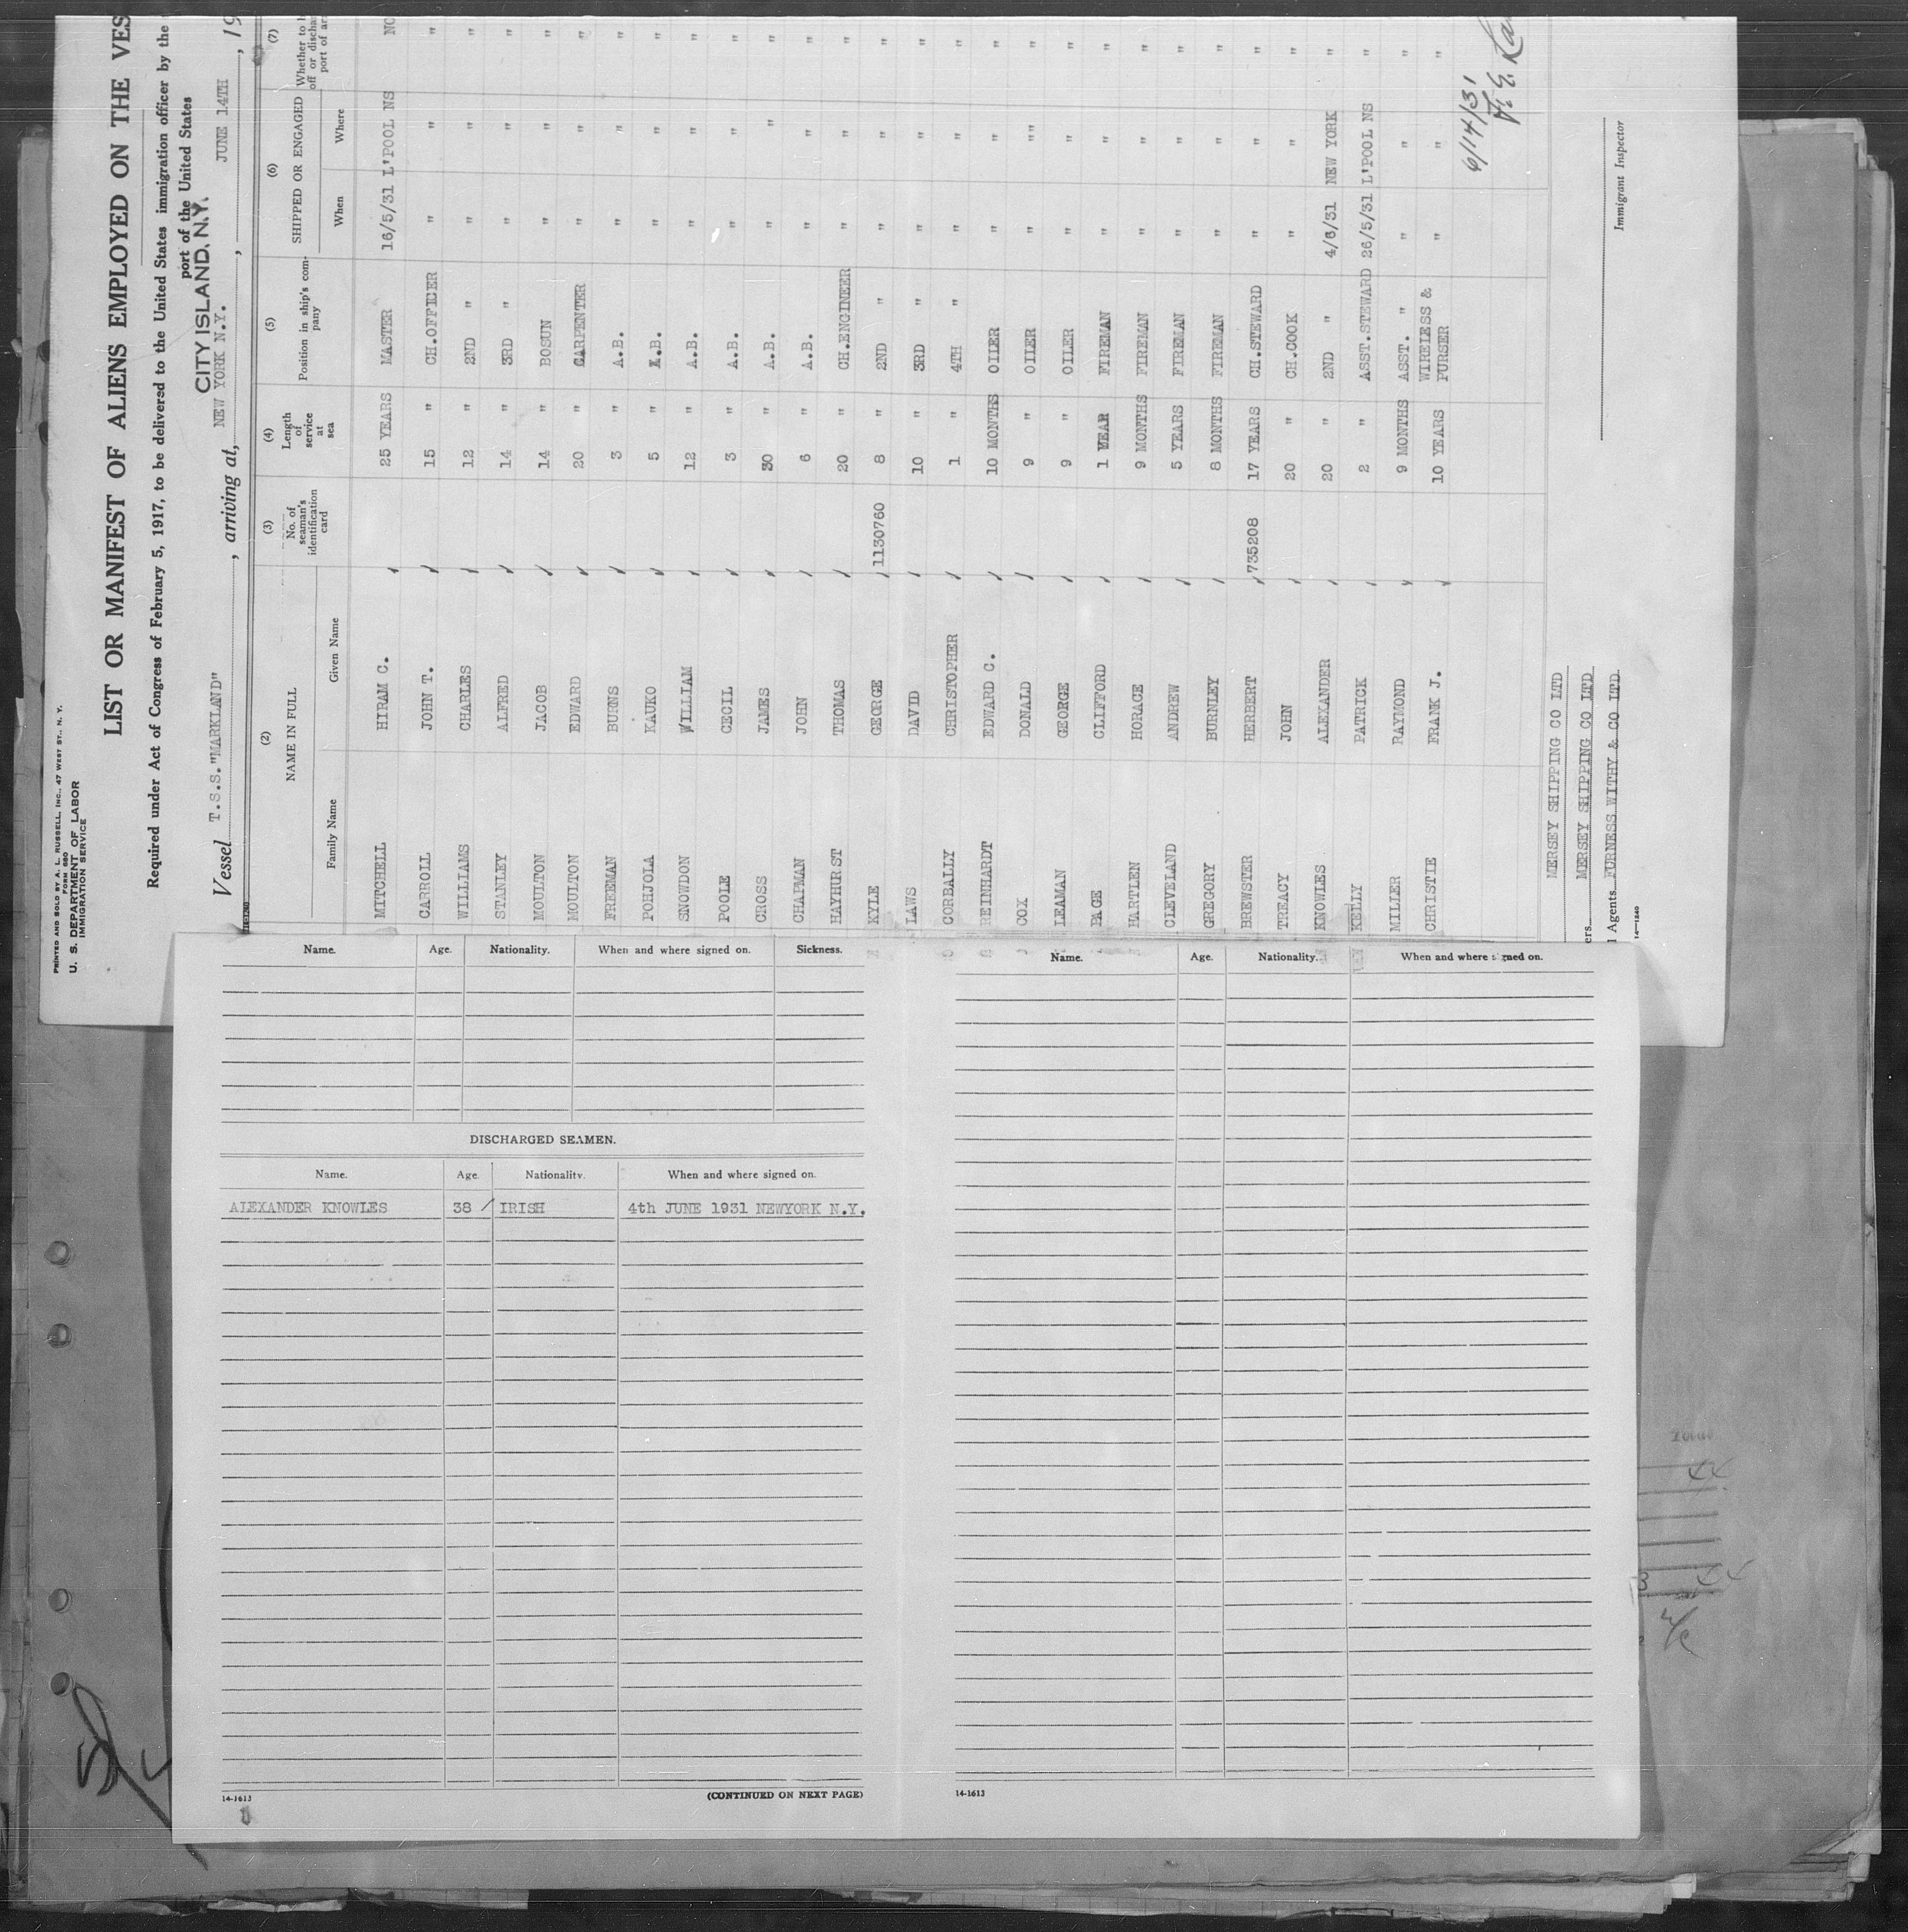 PRINTED AND SOLD BY A. L. RUSSELL, INC., 47 WEST ST., N. Y.
FORM 680
U. S. DEPARTMENT OF LABOR
IMMIGRATION SERVICE
LIST OR MANIFEST OF ALIENS EMPLOYED ON THE VES
Required under Act of Congress of February 5, 1917, to be delivered to the United States immigration officer by the
port of the United States
CITY ISLAND, N.Y.
Vessel T.S.S."MARKLAND", arriving at, NEW YORK N.Y., JUNE 14TH, 19
(2) (3) (4) (5) (6) (7)
NAME IN FULL No. of seaman's identification card Length of service at sea Position in ship's company SHIPPED OR ENGAGED Whether to b
off or dischar
port of arr
Family Name Given Name When Where
MITCHELL HIRAM C. 25 YEARS MASTER 16/5/31 L'POOL NS NO
CARROLL JOHN T. 15 " CH.OFFICER " " "
WILLIAMS CHARLES 12 " 2ND " " " "
STANLEY ALFRED 14 " 3RD " " " "
MOULTON JACOB 14 " BOSUN " " "
MOULTON EDWARD 20 " CARPENTER " " "
FREEMAN BURNS 3 " A.B. " " "
POHJOLA KAUKO 5 " A.B. " " "
SNOWDON WILLIAM 12 " A.B. " " "
POOLE CECIL 3 " A.B. " " "
CROSS JAMES 30 " A.B. " " "
CHAPMAN JOHN 6 " A.B. " " "
HAYHURST THOMAS 20 " CH.ENGINEER " " "
KYLE GEORGE 1130760 8 " 2ND " " " "
LAWS DAVID 10 " 3RD " " " "
CORBALLY CHRISTOPHER 1 " 4TH " " " "
REINHARDT EDWARD C. 10 MONTHS OILER " " "
COX DONALD 9 " OILER " "" "
LEAMAN GEORGE 9 " OILER " " "
PAGE CLIFFORD 1 YEAR FIREMAN " " "
HARTLEN HORACE 9 MONTHS FIREMAN " " "
CLEVELAND ANDREW 5 YEARS FIREMAN " " "
GREGORY BURNLEY 8 MONTHS FIREMAN " " "
BREWSTER HERBERT 735208 17 YEARS CH.STEWARD " " "
TREACY JOHN 20 " CH.COOK " " "
KNOWLES ALEXANDER 20 " 2ND " 4/6/31 NEW YORK "
KELLY PATRICK 2 " ASST.STEWARD 26/5/31 L'POOL NS "
MILLER RAYMOND 9 MONTHS ASST. " " " "
CHRISTIE FRANK J. 10 YEARS WIRELESS & PURSER " " "
6/14/31
MERSEY SHIPPING CO LTD
ers MERSEY SHIPPING CO LTD
l Agents FURNESS WITHY & CO LTD.
Immigrant Inspector
14—1240
Name. Age. Nationality. When and where signed on. Sickness.
DISCHARGED SEAMEN.
Name. Age. Nationality. When and where signed on.
ALEXANDER KNOWLES 38 / IRISH 4th JUNE 1931 NEWYORK N.Y.
14-1613
(CONTINUED ON NEXT PAGE)
Name. Age. Nationality. When and where signed on.
14-1613
44
3 44